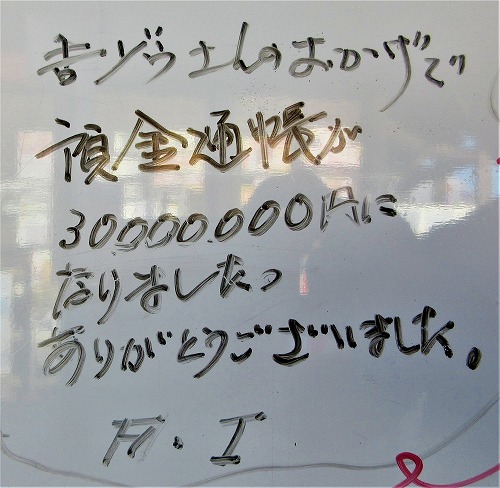 吉ゾウさんのおかげで
預金通帳が
30000.000円に
なりましたっ
ありがとうございました。
A・I